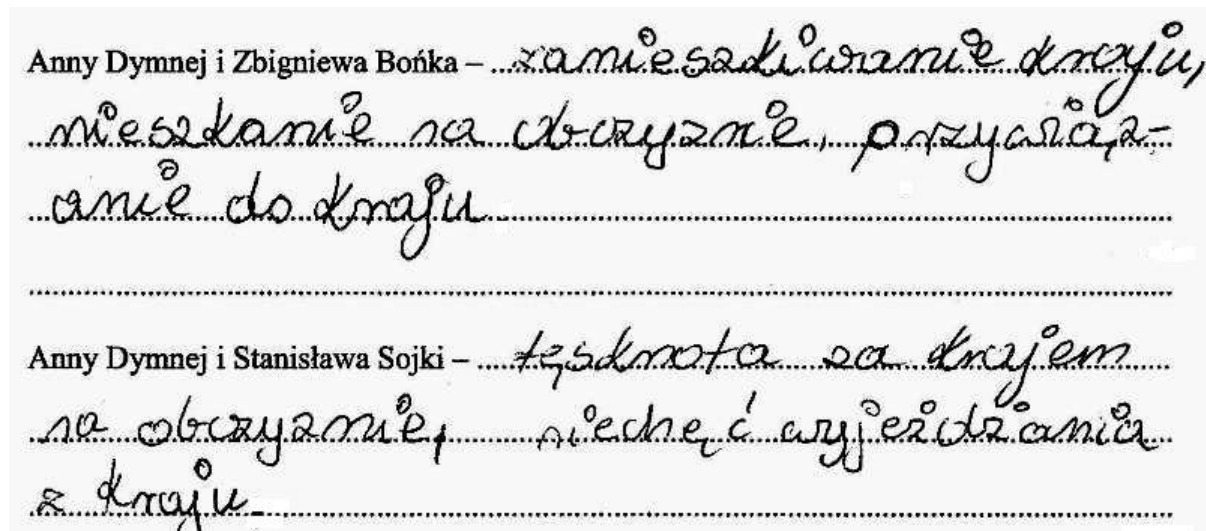 Anny Dymnej i Zbigniewa Bońka – zamieszkiwanie kraju,
mieszkanie na obczyznie, przywiąz-
anie do kraju
Anny Dymnej i Stanisława Sojki – tęsknota za krajem
na obczyznie, niechęć wyjeżdżania
z kraju